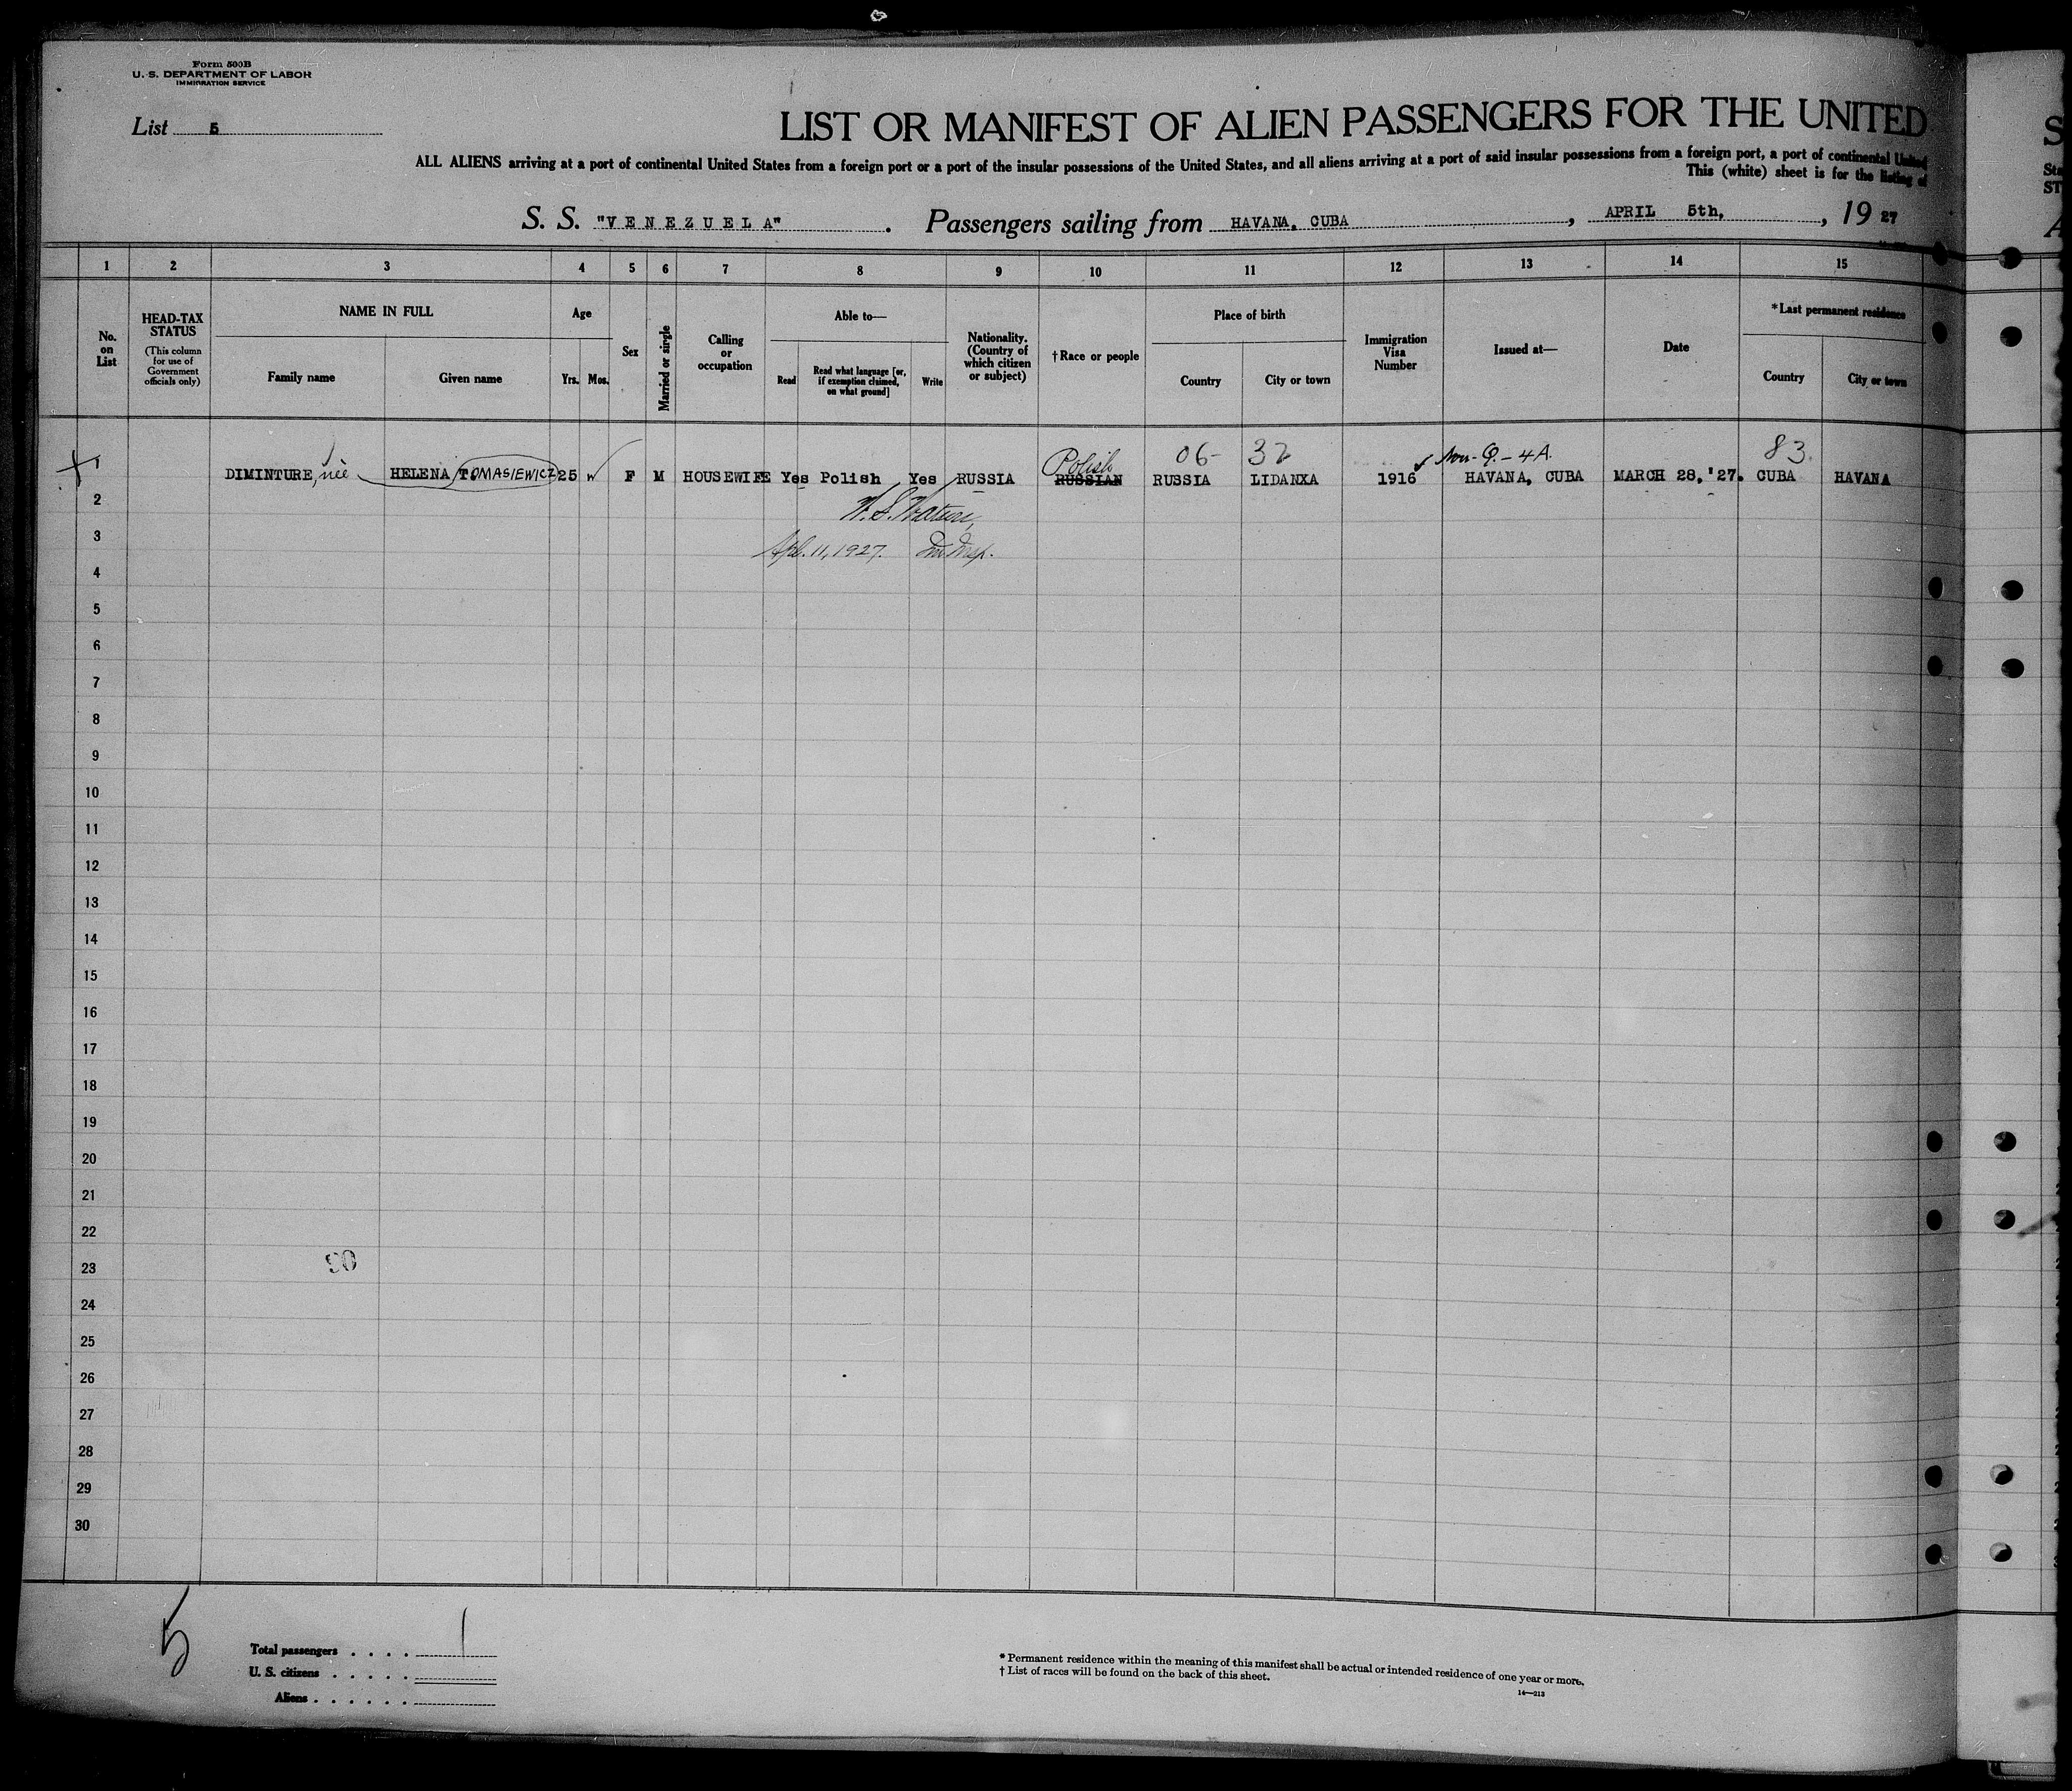 Form 500B
U. S. DEPARTMENT OF LABOR
IMMIGRATION SERVICE
List 5
LIST OR MANIFEST OF ALIEN PASSENGERS FOR THE UNITED
ALL ALIENS arriving at a port of continental United States from a foreign port or a port of the insular possessions of the United States, and all aliens arriving at a port of said insular possessions from a foreign port, a port of continental United
This (white) sheet is for the listing of
S. S. "VENEZUELA". Passengers sailing from HAVANA, CUBA, APRIL 5th, 1927
1 2 3 4 5 6 7 8 9 10 11 12 13 14 15
No. on List
HEAD-TAX STATUS
(This column for use of Government officials only)
NAME IN FULL
Family name Given name
Age
Yrs. Mos.
Sex
Married or single
Calling or occupation
Able to—
Read Read what language [or, if exemption claimed, on what ground] Write
Nationality. (Country of which citizen or subject)
†Race or people
Place of birth
Country City or town
Immigration Visa Number
Issued at—
Date
*Last permanent residence
Country City or town
Polish 06- 32 Non-Q.-4A. 83
1 DIMINTURE, née HELENA TOMASIEWICZ 25 F M HOUSEWIFE Yes Polish Yes RUSSIA RUSSIAN RUSSIA LIDANXA 1916 HAVANA, CUBA MARCH 28,'27. CUBA HAVANA
2
3 Apl. 11, 1927. Im Insp.
4
5
6
7
8
9
10
11
12
13
14
15
16
17
18
19
20
21
22
23
90
24
25
26
27
28
29
30
5
Total passengers . . . . 1
U. S. citizens . . . . .
Aliens . . . . . .
* Permanent residence within the meaning of this manifest shall be actual or intended residence of one year or more.
† List of races will be found on the back of this sheet.
14—213
S
Sta
ST
A